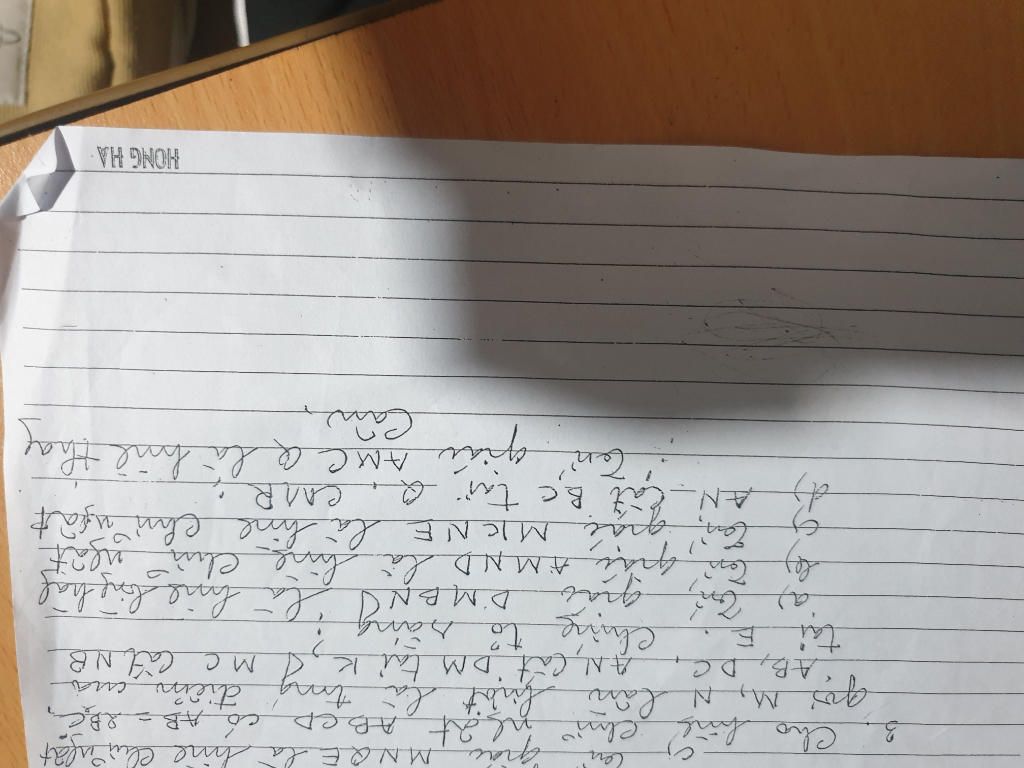 c) Tứ giác MNQE là hình chữ nhật
3. Cho hình chữ nhật ABCD có AB = 2BC,
gọi M, N lần lượt là trung điểm của
AB, DC, AN cắt DM tại K, MC cắt NB
tại E. Chứng tỏ rằng:
a) Tứ giác DMBN là hình bình hành
b) Tứ giác AMND là hình chữ nhật
c) Tứ giác MKNE là hình chữ nhật
d) AN cắt BC tại Q. CMR:
Tứ giác AMCQ là hình thang
Cân.
HONG HA